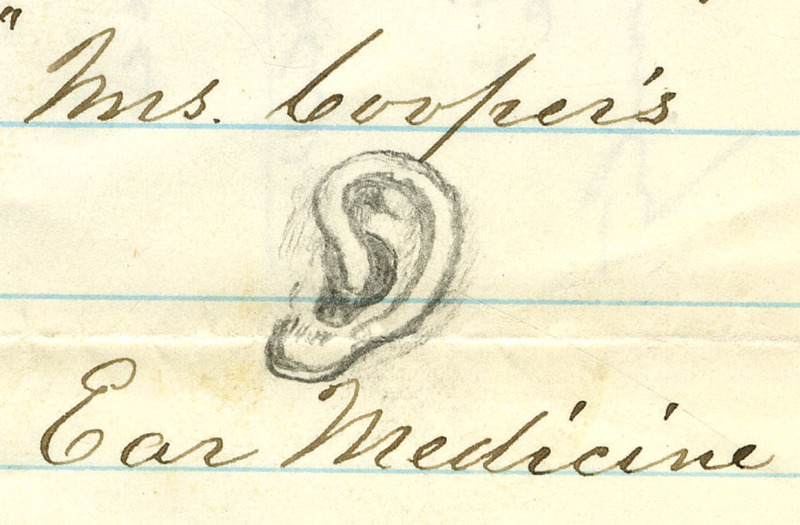 " Mrs. Cooper's
Ear Medicine